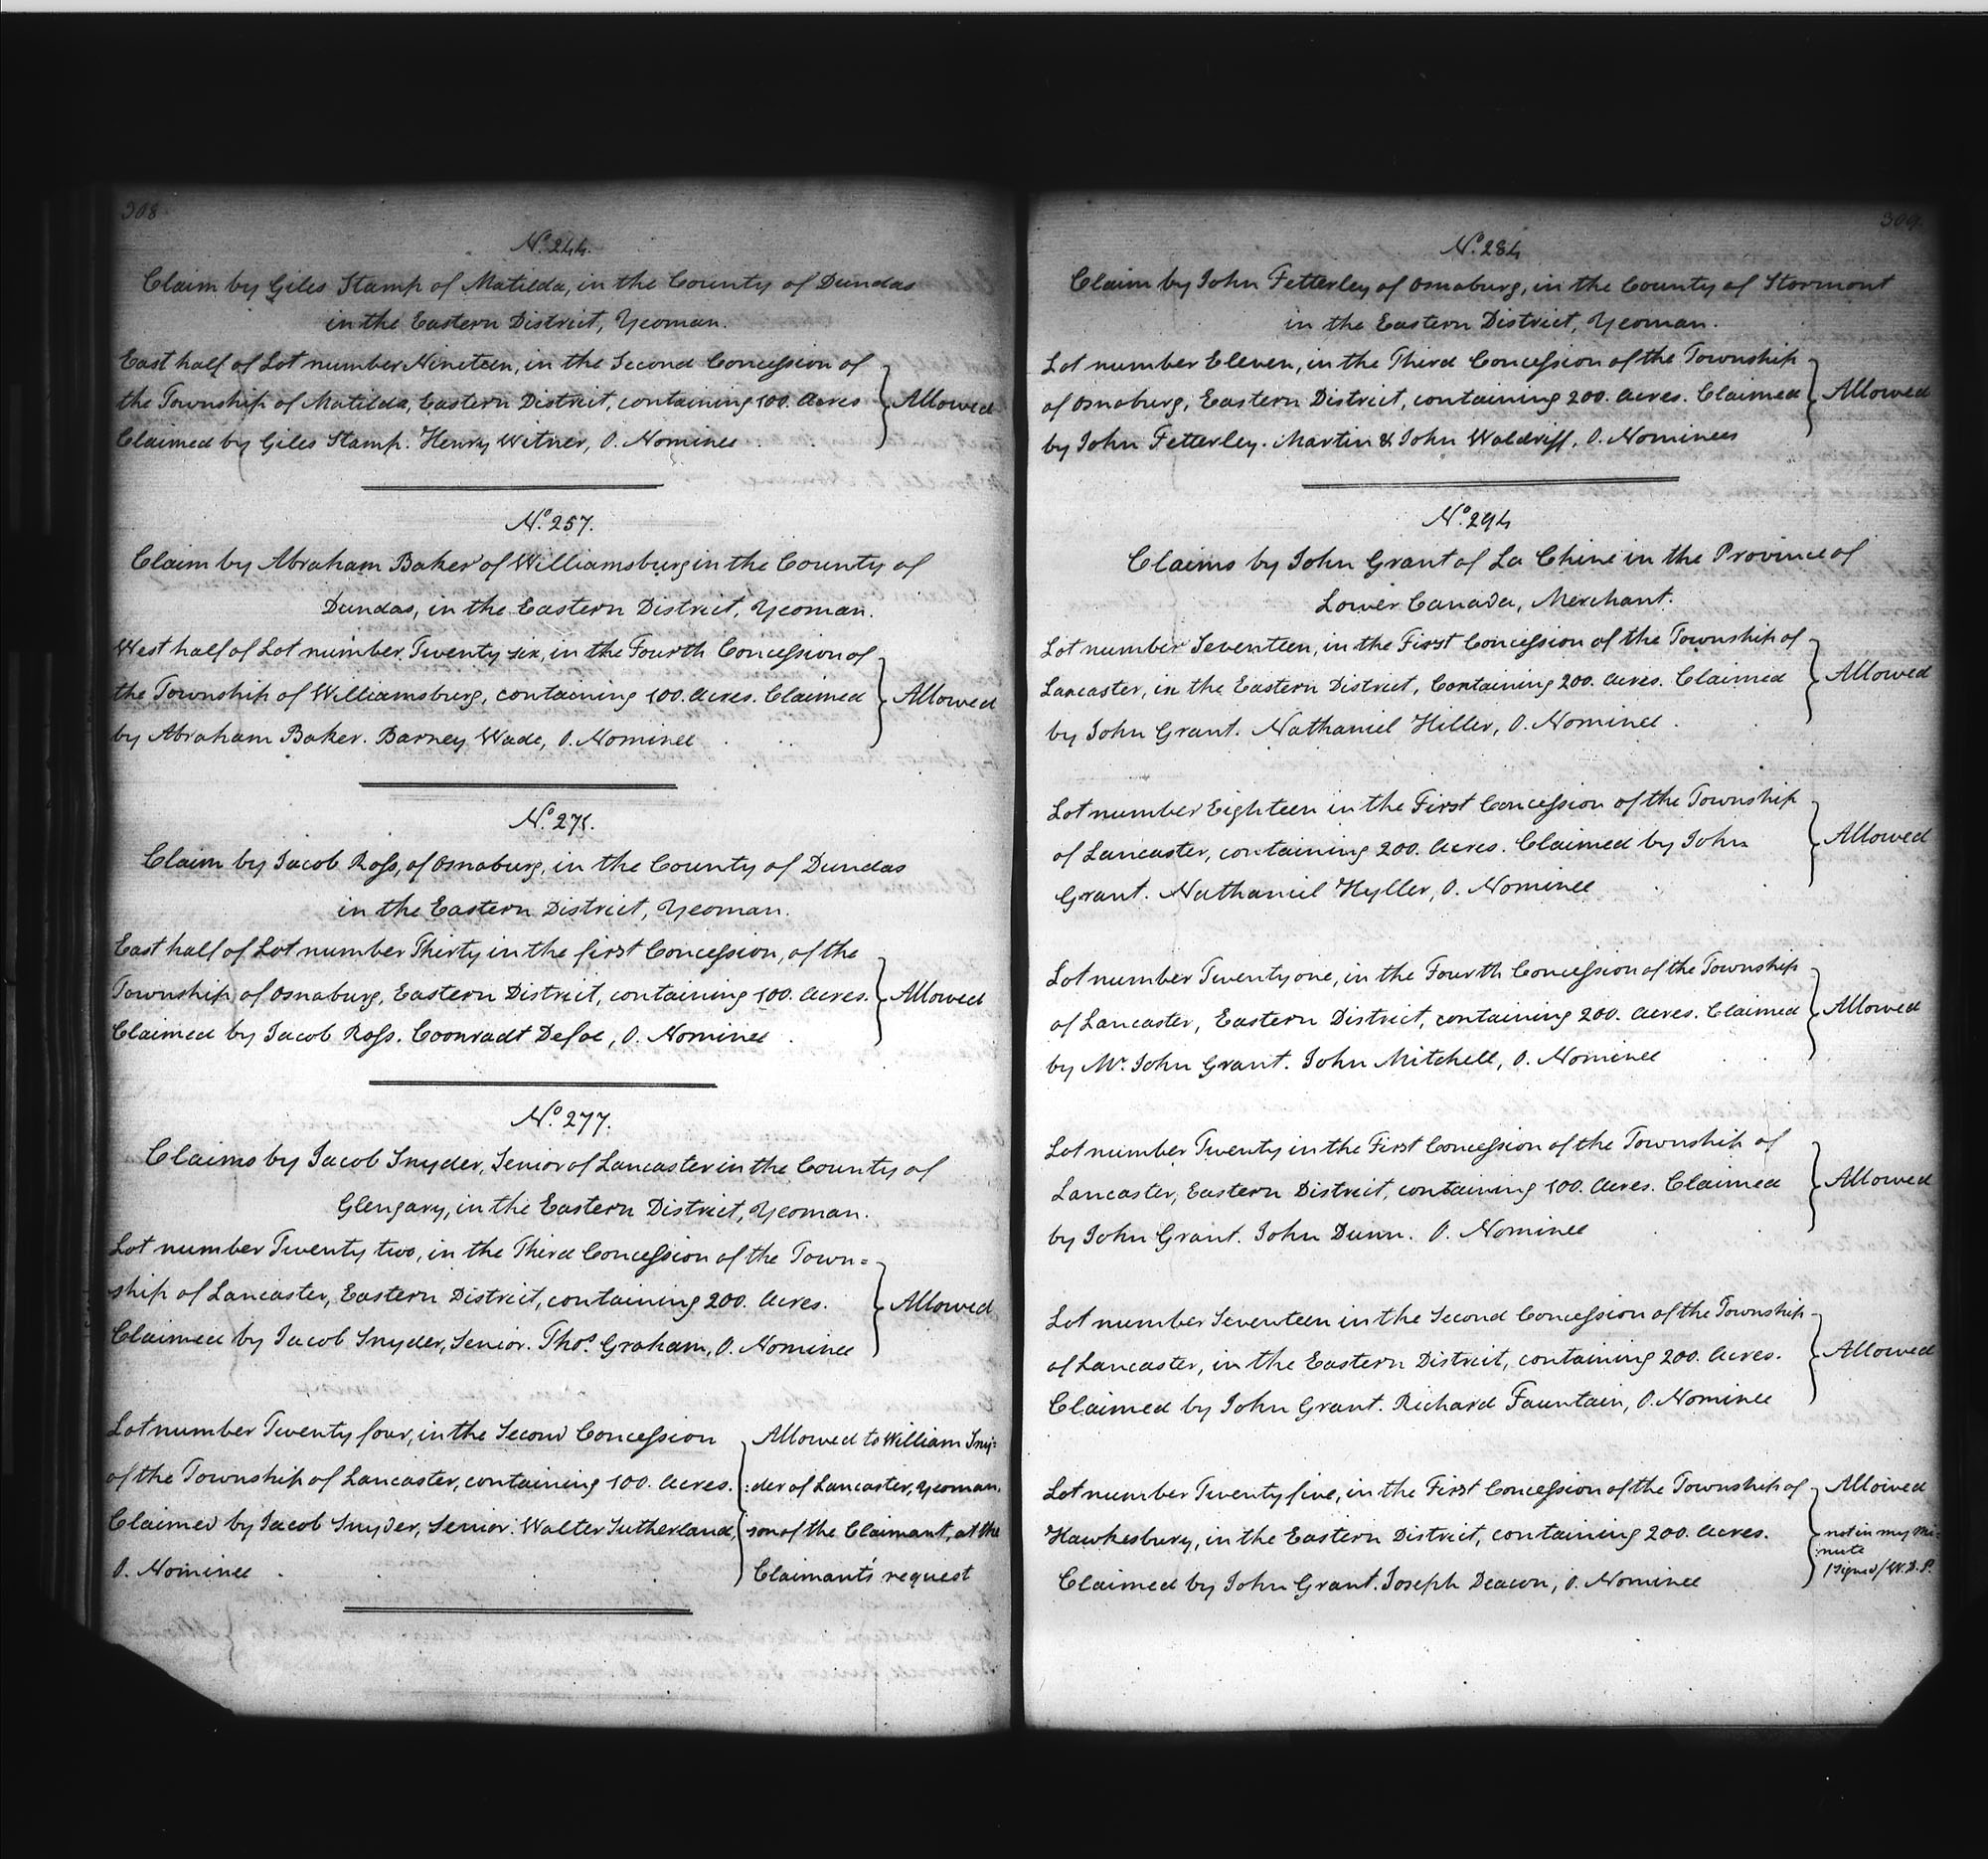 308
No. 244.
Claim by Giles Stamp of Matilda, in the County of Dundas
in the Eastern District, Yeoman.
East half of Lot number Nineteen, in the Second Concession of
the Township of Matilda, Eastern District, containing 100. Acres
Claimed by Giles Stamp. Henry Witner, O. Nominee
Allowed
No. 257.
Claim by Abraham Baker of Williamsburg in the County of
Dundas, in the Eastern District, Yeoman.
West half of Lot number Twenty six, in the Fourth Concession of
the Township of Williamsburg, containing 100. Acres. Claimed
by Abraham Baker. Barney Wade, O. Nominee
Allowed
No. 271.
Claim by Jacob Ross, of Osnaburg, in the County of Dundas
in the Eastern District, Yeoman.
East half of Lot number Thirty in the first Concession, of the
Township of Osnaburg, Eastern District, containing 100. Acres.
Claimed by Jacob Ross. Coonradt Defoe, O. Nominee
Allowed
No. 277.
Claims by Jacob Snyder, Senior of Lancaster in the County of
Glengary, in the Eastern District, Yeoman.
Lot number Twenty two, in the Third Concession of the Town=
ship of Lancaster, Eastern District, containing 200. Acres.
Claimed by Jacob Snyder, Senior. Thos. Graham, O. Nominee
Allowed
Lot number Twenty four, in the Second Concession
of the Township of Lancaster, containing 100. Acres.
Claimed by Jacob Snyder, Senior. Walter Sutherland,
O. Nominee
Allowed to William Sny:
:der of Lancaster, Yeoman,
son of the Claimant, at the
Claimant's request
309
No. 284
Claim by John Fetterley of Osnaburg, in the County of Stormont
in the Eastern District, Yeoman.
Lot number Eleven, in the Third Concession of the Township
of Osnaburg, Eastern District, containing 200. Acres. Claimed
by John Fetterley. Martin & John Waldriff, O. Nominees
Allowed
No. 294
Claims by John Grant of La Chine in the Province of
Lower Canada, Merchant.
Lot number Seventeen, in the First Concession of the Township of
Lancaster, in the Eastern District, Containing 200. Acres. Claimed
by John Grant. Nathaniel Hiller, O. Nominee.
Allowed
Lot number Eighteen in the First Concession of the Township
of Lancaster, containing 200. Acres. Claimed by John
Grant. Nathaniel Hyller, O. Nominee
Allowed
Lot number Twenty one, in the Fourth Concession of the Township
of Lancaster, Eastern District, containing 200. Acres. Claimed
by Mr. John Grant. John Mitchell, O. Nominee
Allowed
Lot number Twenty in the First Concession of the Township of
Lancaster, Eastern District, containing 100. Acres. Claimed
by John Grant. John Dunn. O. Nominee
Allowed
Lot number Seventeen in the Second Concession of the Township
of Lancaster, in the Eastern District, containing 200. Acres.
Claimed by John Grant. Richard Fauntain, O. Nominee
Allowed
Lot number Twenty five, in the First Concession of the Township of
Hawkesbury, in the Eastern District, containing 200. Acres.
Claimed by John Grant. Joseph Deacon, O. Nominee
Allowed
not in my Mi:
:nute
/signed/ W. D. P.